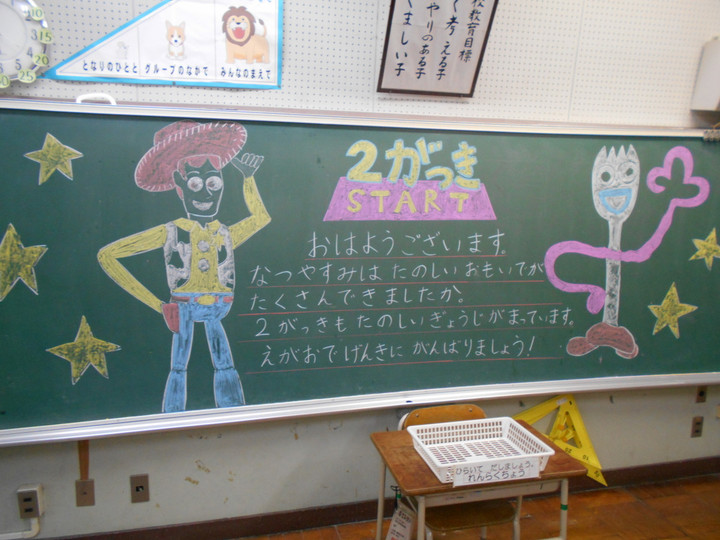 となりのひとと グループのなかで みんなのまえで
校教育目標
く考える子
やりのある子
くましい子
2がっき
START
おはようございます。
なつやすみは たのしい おもいでが
たくさんできましたか。
2がっきも たのしいぎょうじがまっています。
えがおで げんきに がんばりましょう!
ひらいて だしましょう。
れんらくちょう